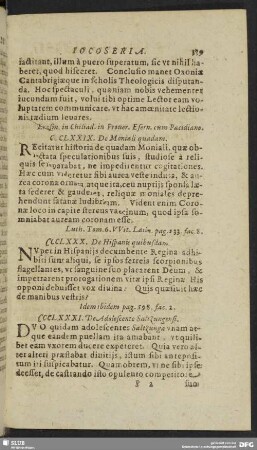 IOCOSERIA.
factitant, illum à puero superatum, sic vt nihil ha-
beret, quod hisceret. Conclusio manet Oxoniæ
Cantabrigiæque in scholis Theologicis disputan-
da. Hoc spectaculi, quoniam nobis vehementer
iucundum fuit, volui tibi optime Lector eam vo-
luptatem communicare, vt hac amœnitate lectio-
nis tædium leuares.
CCLXXIX. De Moniali quadam.
REcitatur historia de quadam Moniali, quæ ob-
stata speculationibus suis, studiose à reli-
quis se separabat, ne impediretur cogitationes.
Hæc cum videretur sibi aurea veste induta, &
aurea corona ornata
federer & gauderet, reliquæ moniales depre-
hendunt satanæ ludibrium. Vident enim Coro-
næ loco in capite stercus vaccinum, quod ipsa som-
niabat auream coronam esse.
Luth. Tom. 6. VVit. Latin. pag. 233. fac. 8.
CCLXXX. De Hispanis quibusdam.
NVper in Hispanijs decumbente Regina adhi-
biti sunt aliqui, se ipsos setreis scorpionibus
flagellantes, vt sanguine suo placarent Deum, &
impetrarent prorogationem vitæ ipsi Reginæ. His
opponi debuisset vox diuina: Quis quæsiuit hæc
de manibus vestris?
Idem ibidem pag. 598. fac. 2.
CCLXXXI. De Adolescente Saltzungensi.
DVO quidam adolescentes Saltzunga vnam at-
que eandem puellam ita amabant, vt quili-
bet eam vxorem ducere expeteret. Quia vero al-
ter alteri præstabat diuitijs, istum sibi antepositum
iri suspicabatur. Quam obrem, vt ne sibi ipsi
deesset, de castrando isto opulento competitore